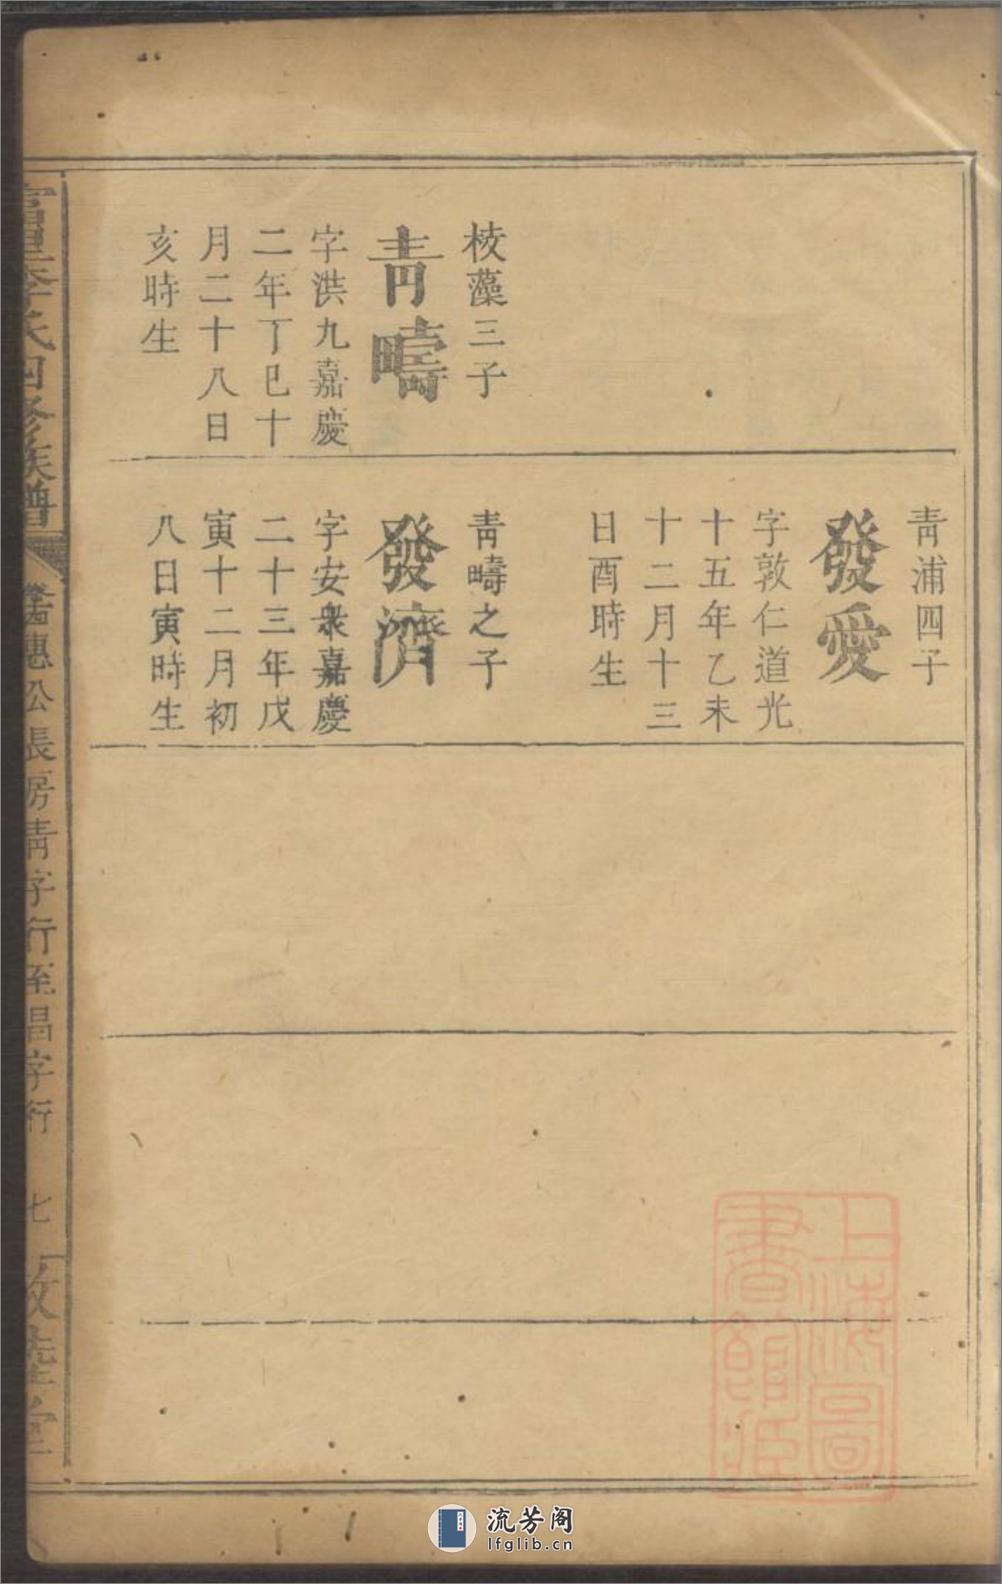 枝藻三子
青疇
字洪九嘉慶
二年丁巳十
月二十八日
亥時生
青浦四子
發愛
字敦仁道光
十五年乙未
十二月十三
日酉時生
青疇之子
發濟
字安衆嘉慶
二十三年戊
寅十二月初
八日寅時生
李氏四修族譜
公長房青字行至昌字行
七
上海圖書館藏
流芳阁
lfglib.cn